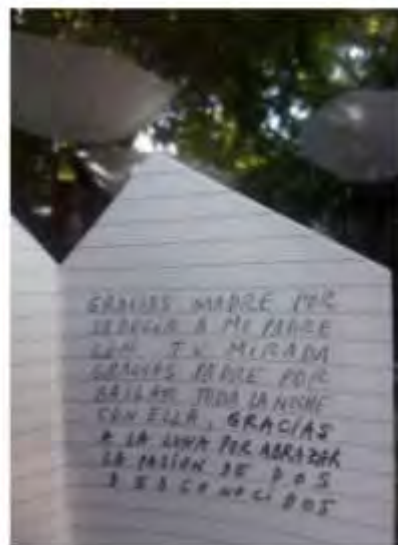 GRACIAS MADRE POR
SEDUCIR A MI PADRE
CON TU MIRADA
GRACIAS PADRE POR
BAILAR TODA LA NOCHE
CON ELLA, GRACIAS
A LA LUNA POR ABRAZAR
LA PASIÓN DE DOS
DESCONOCIDOS